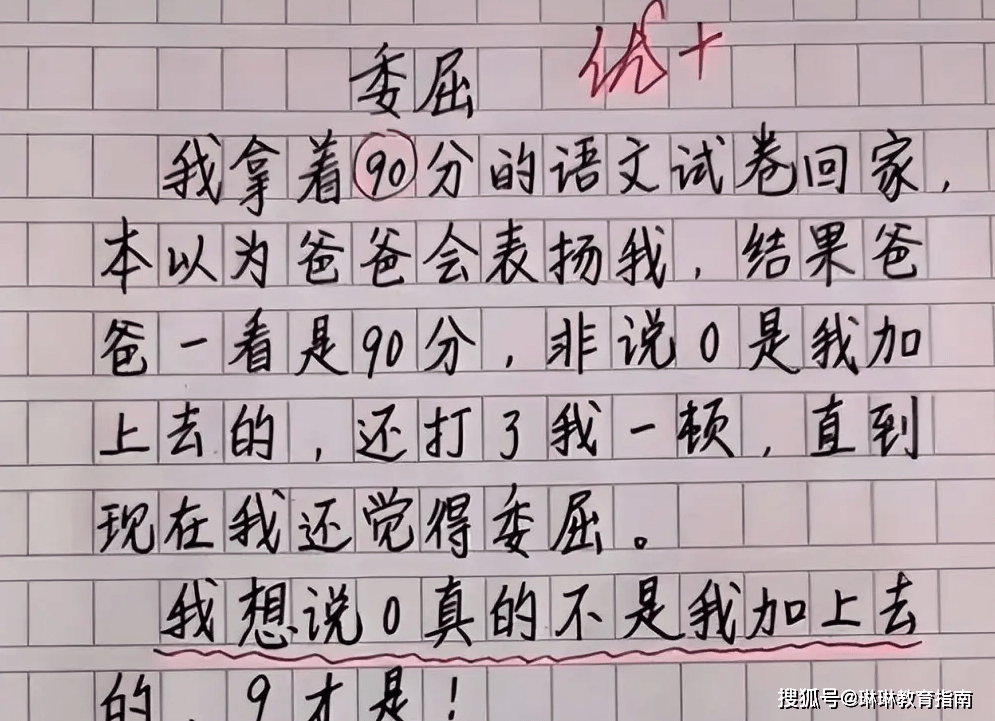 委屈 优+
我拿着90分的语文试卷回家，
本以为爸爸会表扬我，结果爸
爸一看是90分，非说0是我加
上去的，还打了我一顿，直到
现在我还觉得委屈。
我想说0真的不是我加上去
的，9才是！
搜狐号@琳琳教育指南